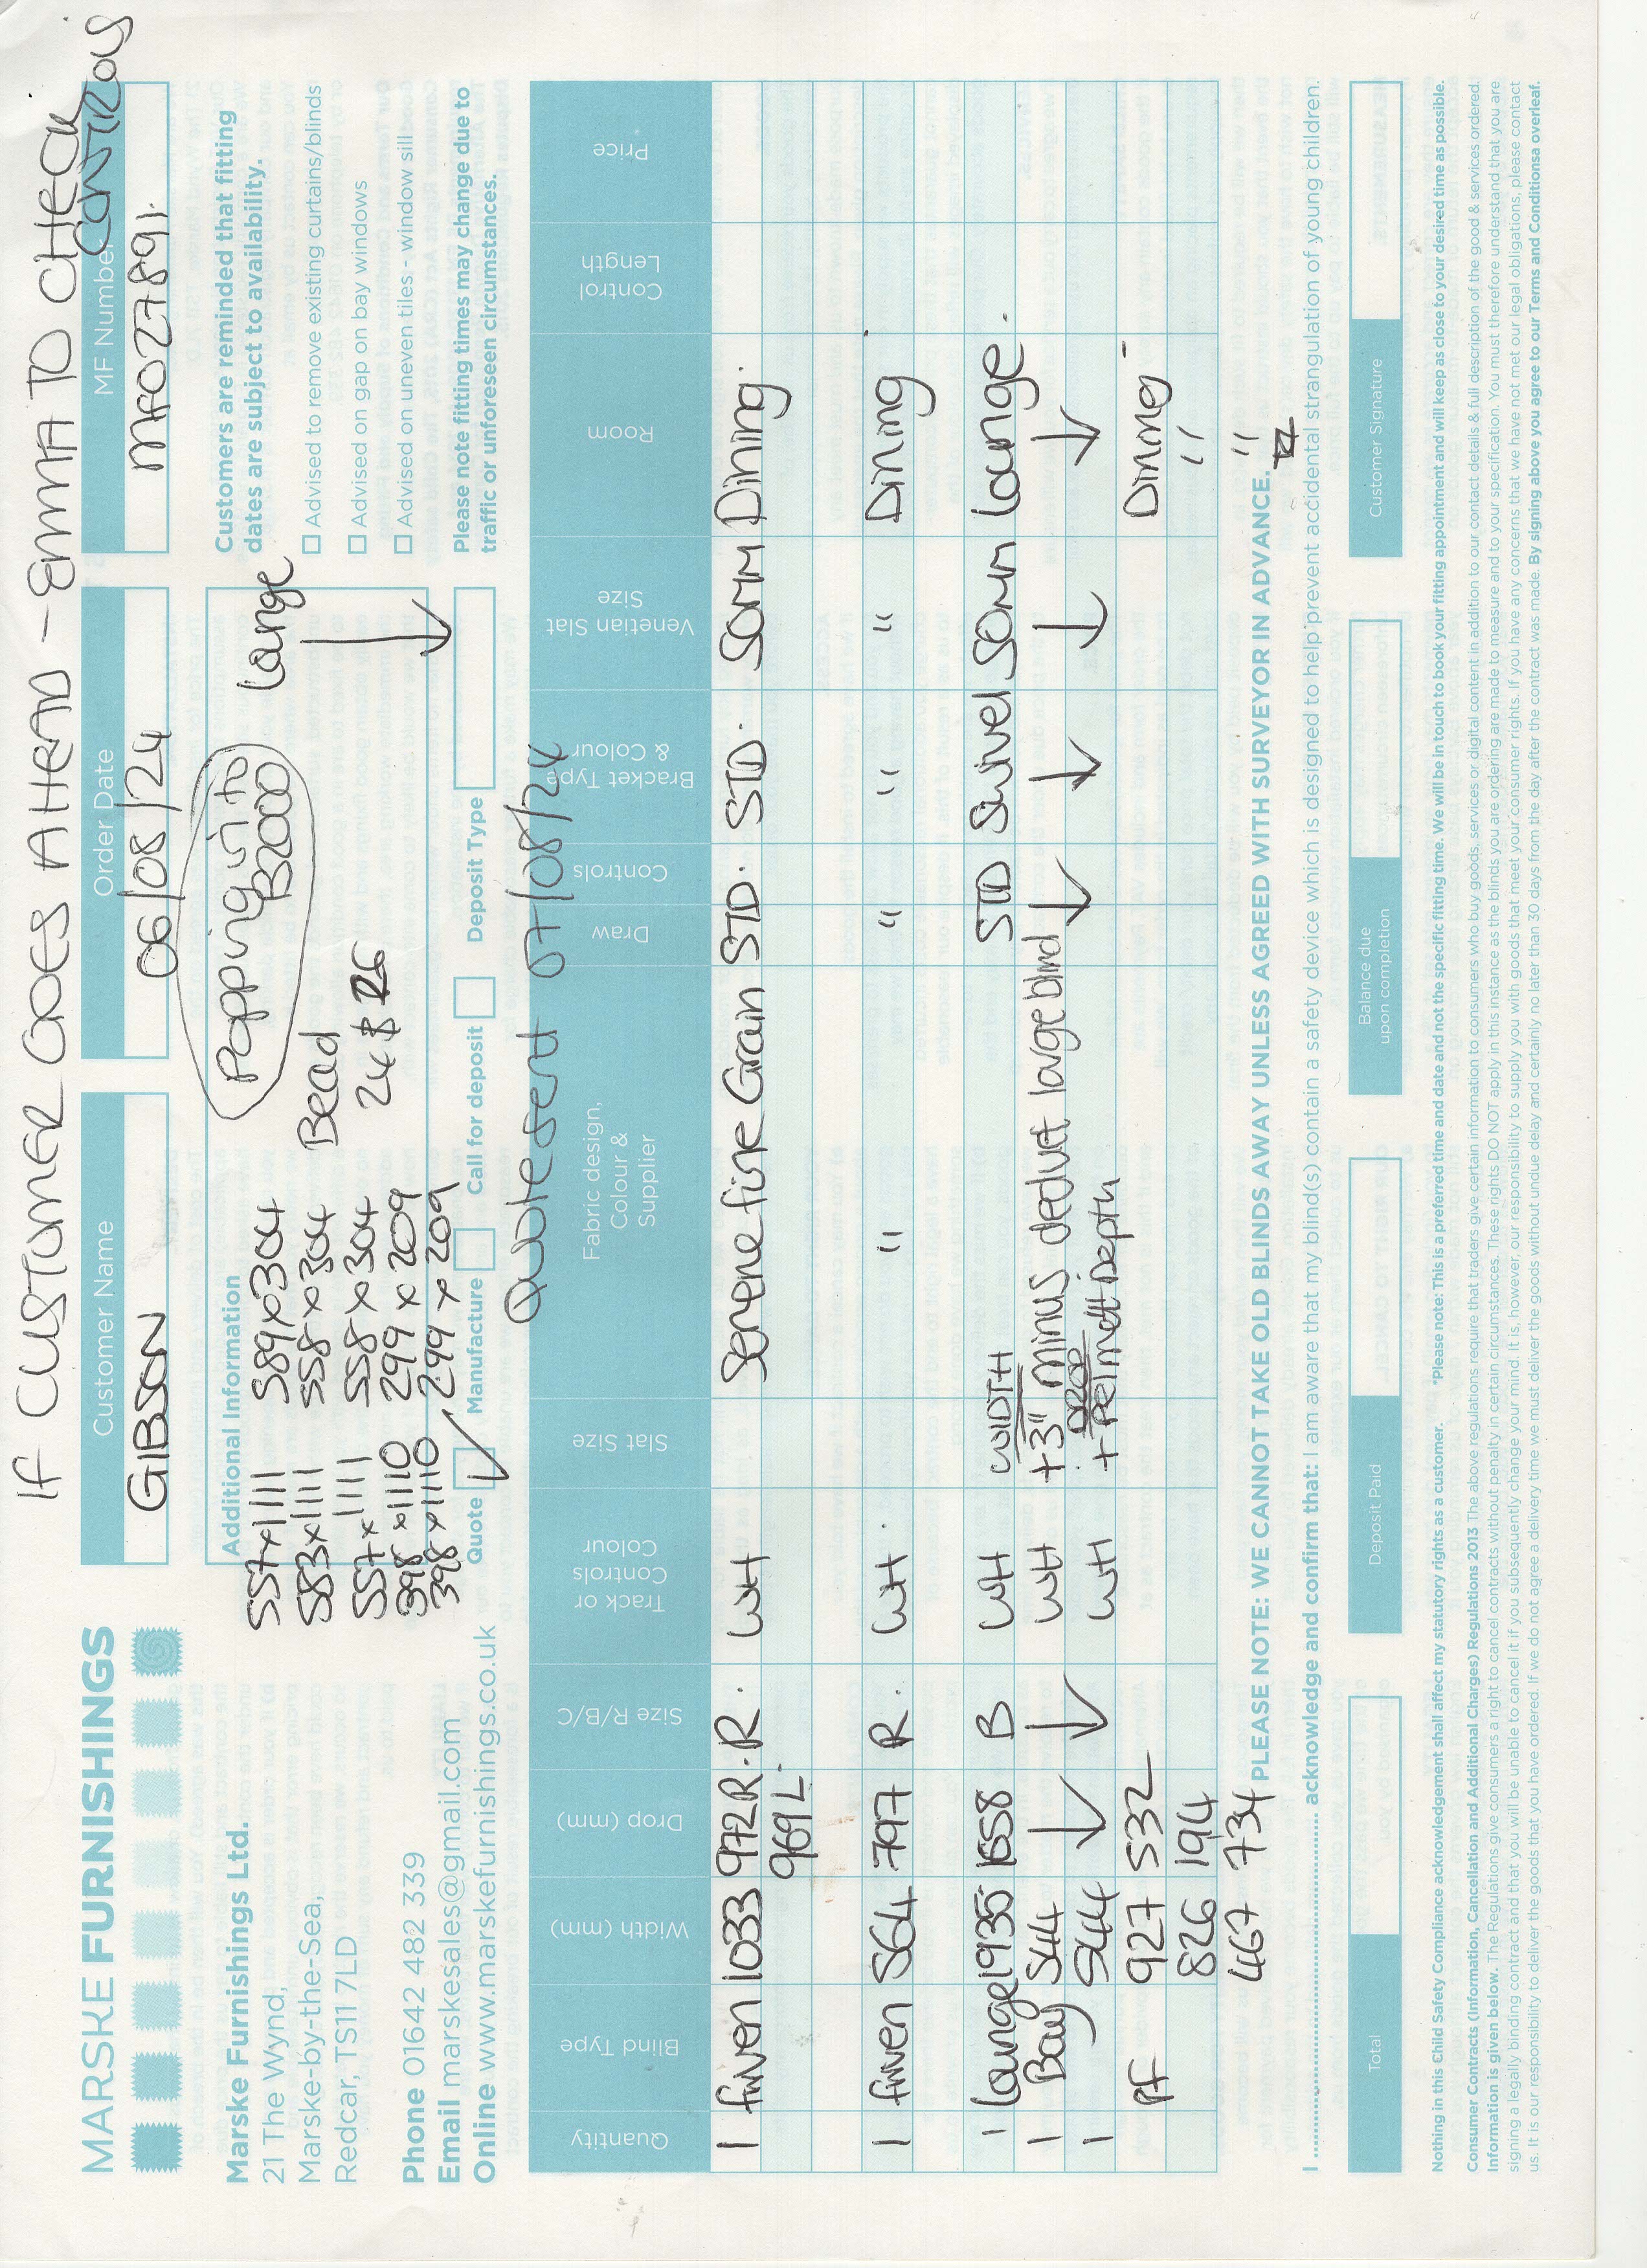 IF CUSTUMER GOES AHEAD - EMMA TO CHECK
CONTROLS
MARSKE FURNISHINGS
Customer Name
GIBSON
Order Date
06/08/24
MF Number
MF027891.
Marske Furnishings Ltd.
21 The Wynd,
Marske-by-the-Sea,
Redcar, TS11 7LD
Phone 01642 482 339
Email marskesales@gmail.com
Online www.marskefurnishings.co.uk
Additional Information
Popping in to
B2000
557x1111 589x304 Lounge
583x1111 558x304 Bead
557x1111 558x304 24 & 26
398x1110 299x209
398x1110 299x209
Quote Manufacture Call for deposit Deposit Type
Quote sent 07/08/24
Customers are reminded that fitting
dates are subject to availability.
Advised to remove existing curtains/blinds
Advised on gap on bay windows
Advised on uneven tiles - window sill
Please note fitting times may change due to
traffic or unforeseen circumstances.
Quantity Blind Type Width (mm) Drop (mm) Size R/B/C Track or Controls Colour Slat Size Fabric design, Colour & Supplier Draw Controls Bracket Type & Colour Venetian Slat Size Room Control Length Price
1 fwven 1033 972R. R. WH Serene fine Grain STD. STD. 50MM Dining.
969L.
1 fwven 564 797 R. WH. " " " " Dining
1 Lounge 1935 1658 B WH WIDTH STD Swivel 50MM Lounge.
1 Bay 544 ↓ ↓ WH +3" minus deduct large blind ↓ ↓ ↓ ↓
1 544 WH DROP + Pelmett Depth
PF 927 532 Dining
826 194 "
467 734 "
PLEASE NOTE: WE CANNOT TAKE OLD BLINDS AWAY UNLESS AGREED WITH SURVEYOR IN ADVANCE.
I .............................. acknowledge and confirm that: I am aware that my blind(s) contain a safety device which is designed to help prevent accidental strangulation of young children.
Total Deposit Paid Balance due upon completion Customer Signature
Nothing in this Child Safety Compliance acknowledgement shall affect my statutory rights as a customer. *Please note: This is a preferred time and date and not the specific fitting time. We will be in touch to book your fitting appointment and will keep as close to your desired time as possible.
Consumer Contracts (Information, Cancellation and Additional Charges) Regulations 2013 The above regulations require that traders give certain information to consumers who buy goods, services or digital content in addition to our contact details & full description of the good & services ordered.
Information is given below. The Regulations give consumers a right to cancel contracts without penalty in certain circumstances. These rights DO NOT apply in this instance as the blinds you are ordering are made to measure and to your specification. You must therefore understand that you are
signing a legally binding contract and that you will be unable to cancel it if you subsequently change your mind. It is, however, our responsibility to supply you with goods that meet your consumer rights. If you have any concerns that we have not met our legal obligations, please contact
us. It is our responsibility to deliver the goods that you have ordered. If we do not agree a delivery time we must deliver the goods without undue delay and certainly no later than 30 days from the day after the contract was made. By signing above you agree to our Terms and Conditionsa overleaf.